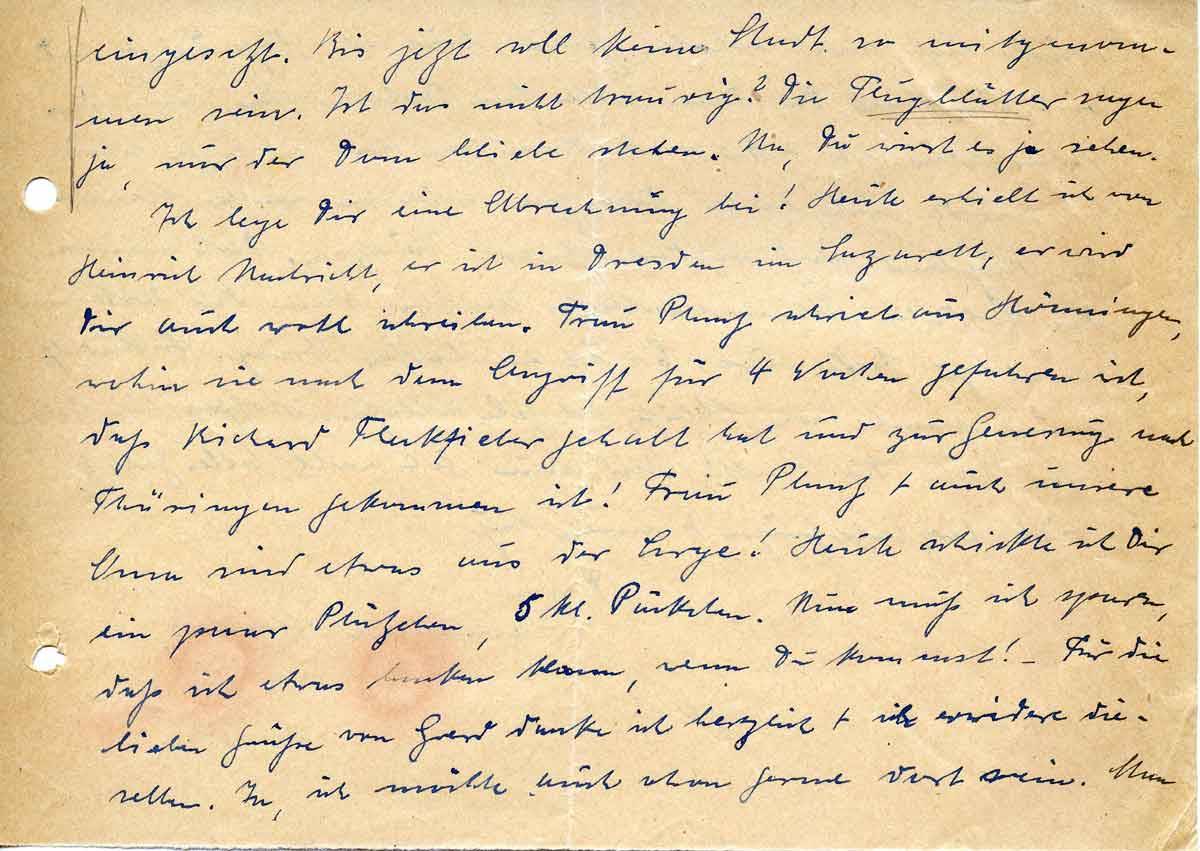 eingesetzt. Bis jetzt soll keine Stadt so mitgenom-
men sein. Ist das nicht traurig? Die Flugblätter sagen
ja, nur der Dom bliebe stehen. Na, Du wirst es ja sehen.
Ich lege Dir eine Abrechnung bei! Heute erhielt ich von
Heinrich Nachricht, er ist in Dresden im Lazarett, er wird
Dir auch wohl schreiben. Frau schrieb aus Hönningen,
wohin sie nach dem Angriff für 4 Wochen gefahren ist,
daß Richard Fleckfieber gehabt hat und zur Genesung nach
Thüringen gekommen ist! Frau + auch unsere
Oma sind etwas aus der Sorge! Heute schickte ich Dir
ein paar Plätzchen, 5 kl. Päckchen. Nun muß ich sparen,
daß ich etwas backen kann, wenn Du kommst! – Für die
lieben Grüße von Gerd danke ich herzlich + ich erwidere die-
selben. Ja, ich möchte auch schon gerne dort sein. Man